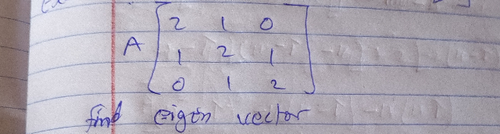 2 1 0
A 1 2 1
0 1 2
find eigen vector